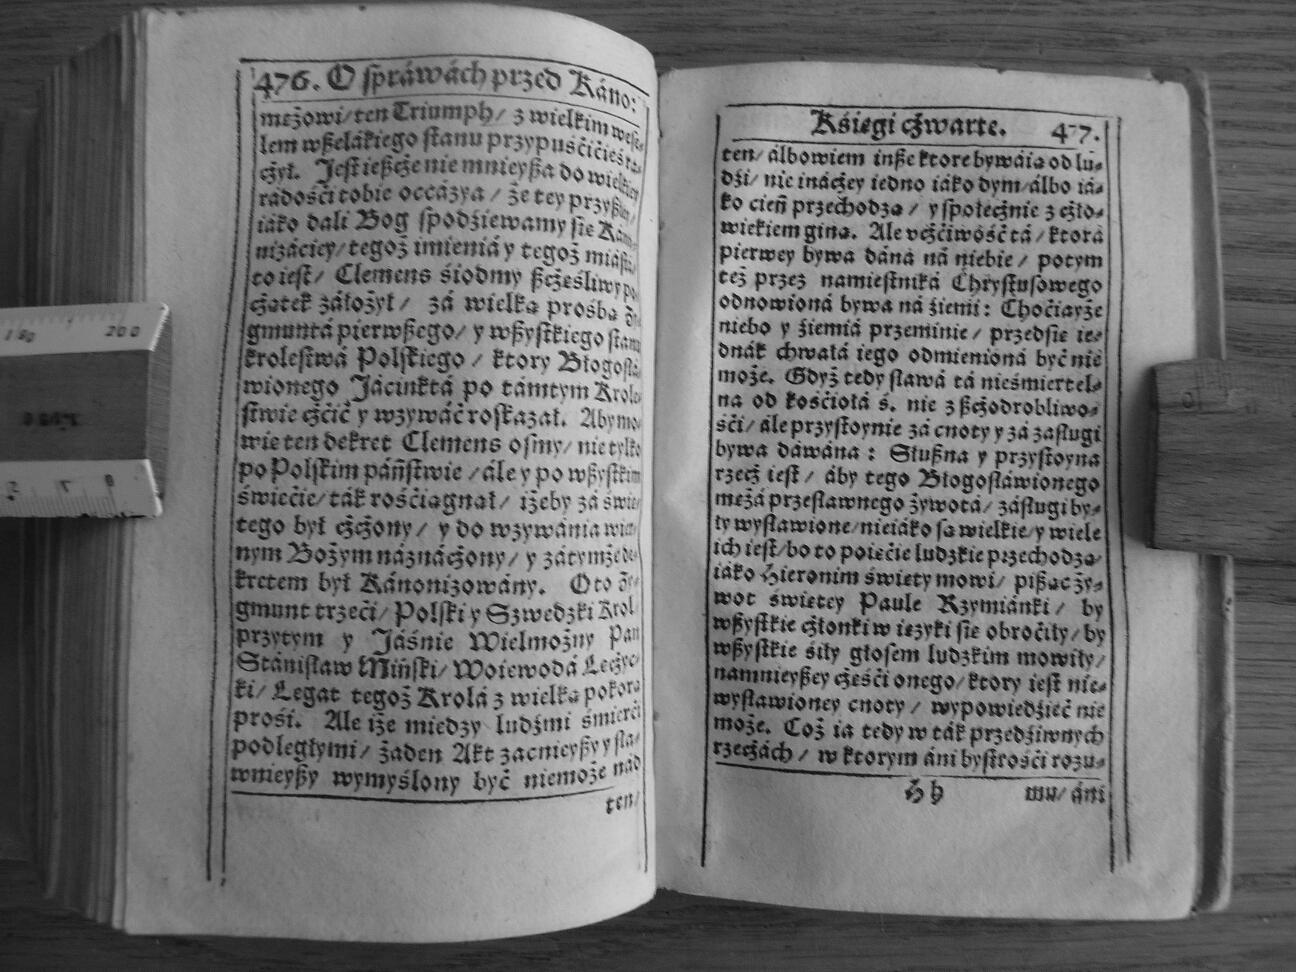 476. O spráwách przed Káno:
mężowi/ ten Triumph/ z wielkim wese-
lem wßelákiego stanu przypuśćićieś
czył. Jest ieszcze nie mnieyßa do wielkiey
rádośći tobie occázya/ że tey przyßłey/
iáko dali Bog spodźiewamy się Káno-
nizáciey/ tegoż imieniá y tegoż miástá/
to iest/ Clemens śiodmy ßcżęśliwy po-
cżątek záłożył/ zá wielką prośbą Zy-
gmuntá pierwßego/ y wßystkiego stanu
krolestwá Polskiego/ ktory Błogosłá-
wionego Jácinktá po támtym Krole-
stwie cżćić y wzywáć roskazał. Aby mo-
wię ten dekret Clemens osmy/ nie tylko
po Polskim páństwie/ ále y po wßystkim
świećie/ ták rośćiągnął/ iżeby zá świę-
tego był cżcżony/ y do wzywánia wie-
nym Bożym náznácżony/ y zátymże de-
kretem był Kánonizowány. Oto Zy-
gmunt trzeći/ Polski y Szwedzki Krol
przytym y Jáśnie Wielmożny Pan
Stánisław Miński/ Woiewodá Lecżyc-
ki/ Legat tegoż Krolá z wielką pokorą
prośi. Ale iże miedzy ludźmi śmierći
podległymi/ żaden Akt zacnieyßy y sła-
wnieyßy wymyślony być niemoże nád
ten/
Kśięgi cżwarte. 477.
ten/ álbowiem inße ktore bywáią od lu-
dźi/ nie inácżey iedno iáko dym/ álbo iá-
ko cień przechodzą/ y społecżnie z cżło-
wiekiem giną. Ale vcżćiwość tá/ ktorá
pierwey bywa dáná ná niebie/ potym
też przez namiestniká Chrystusowego
odnowioná bywa ná źiemi: Choćiayże
niebo y źiemiá przeminie/ przedsię ie-
dnák chwałá iego odmienioná być nie
może. Gdyż tedy sławá tá nieśmiertel-
na od kośćiołá ś. nie z ßcżodrobliwo-
śći/ ále przystoynie zá cnoty y zá zasługi
bywa dawána: Słußna y przystoyna
rzecż iest/ áby tego Błogosłáwionego
mężá przesławnego żywotá/ zásługi by-
ły wysławione/ nieiáko są wielkie/ y wiele
ich iest/ bo to poięćie ludzkie przechodzą/
iáko Hieronim święty mowi/ pißąc ży-
wot świętey Paule Rzymiánki/ by
wßystkie cżłonki w ięzyki się obroćiły/ by
wßystkie śiły głosem ludzkim mowiły/
namnieyßey cżęśći onego/ ktory iest nie-
wysławioney cnoty/ wypowiedźieć nie
może. Coż ia tedy w ták przedźiwnych
rzecżách/ w ktorym áni bystrośći rozu-
H h mu/ áni
200